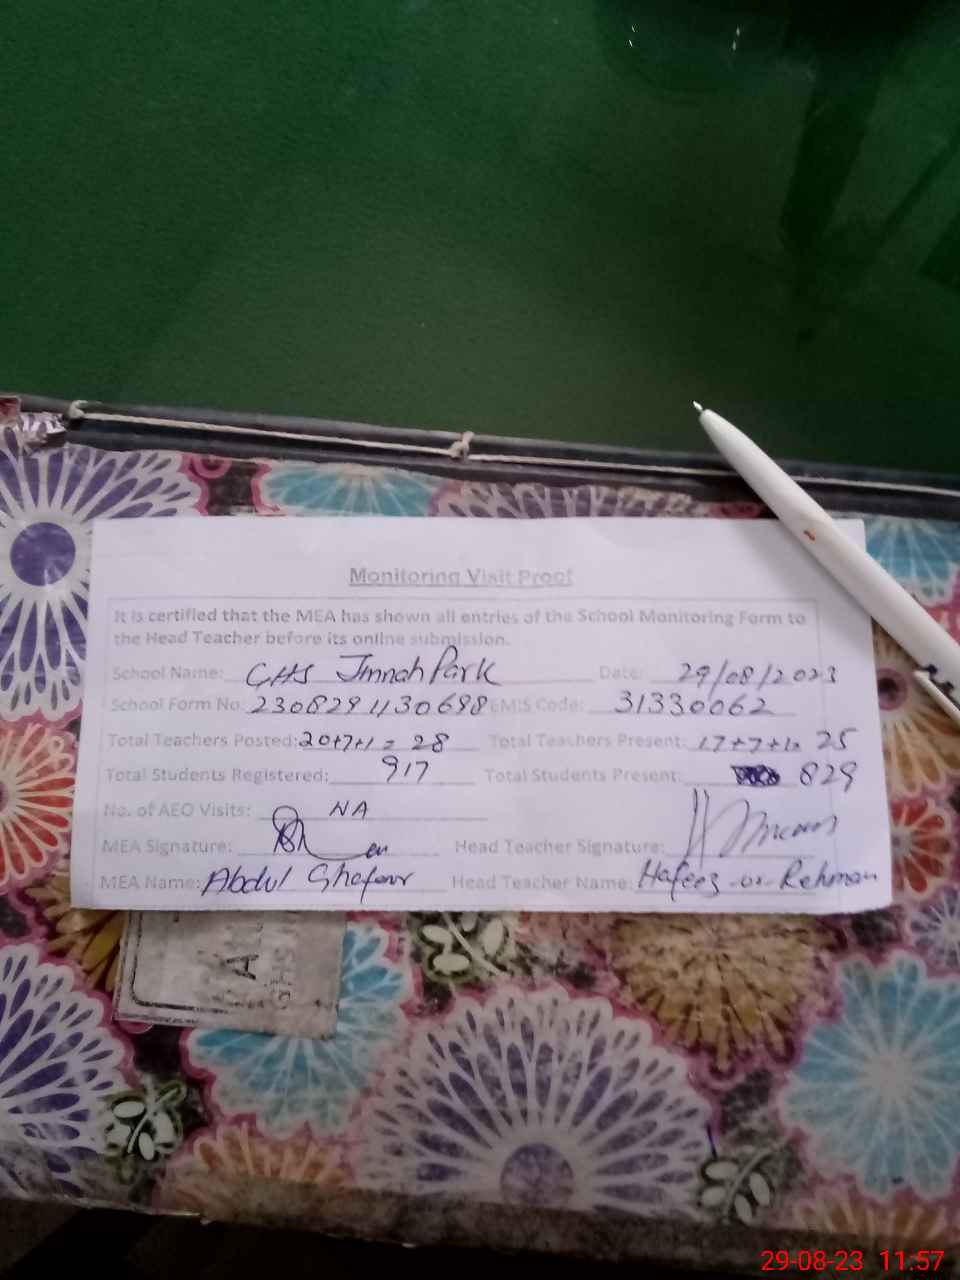 Monitoring Visit Proof
It is certified that the MEA has shown all entries of the School Monitoring Form to
the Head Teacher before its online submission.
School Name: GHS Jinnah Park Date: 29/08/2023
School Form No: EMIS Code: 31330062
Total Teachers Posted: 20+7+1 = 28 Total Teachers Present: 17+7+1= 25
Total Students Registered: 917 Total Students Present: 829
No. of AEO Visits: NA
MEA Signature: Head Teacher Signature:
MEA Name: Abdul Ghafoor Head Teacher Name: Hafeez-ur-Rehman
29-08-23 11:57